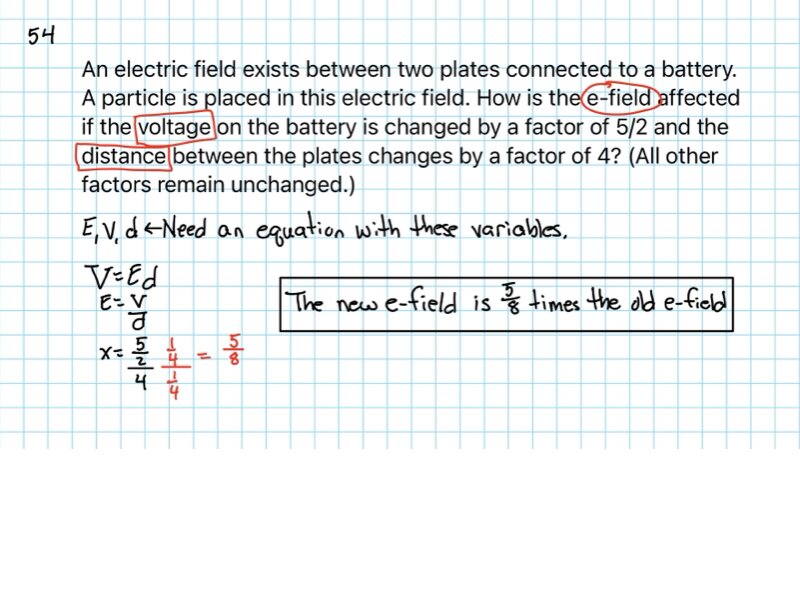 54
An electric field exists between two plates connected to a battery.
A particle is placed in this electric field. How is the e-field affected
if the voltage on the battery is changed by a factor of 5/2 and the
distance between the plates changes by a factor of 4? (All other
factors remain unchanged.)
E, V, d ← Need an equation with these variables.
V=Ed
E=V/d
x=(5/2)/4 (1/4)/(1/4) = 5/8
The new e-field is 5/8 times the old e-field